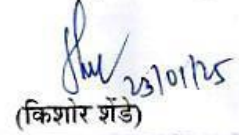 23/01/25
(किशोर शेंडे)